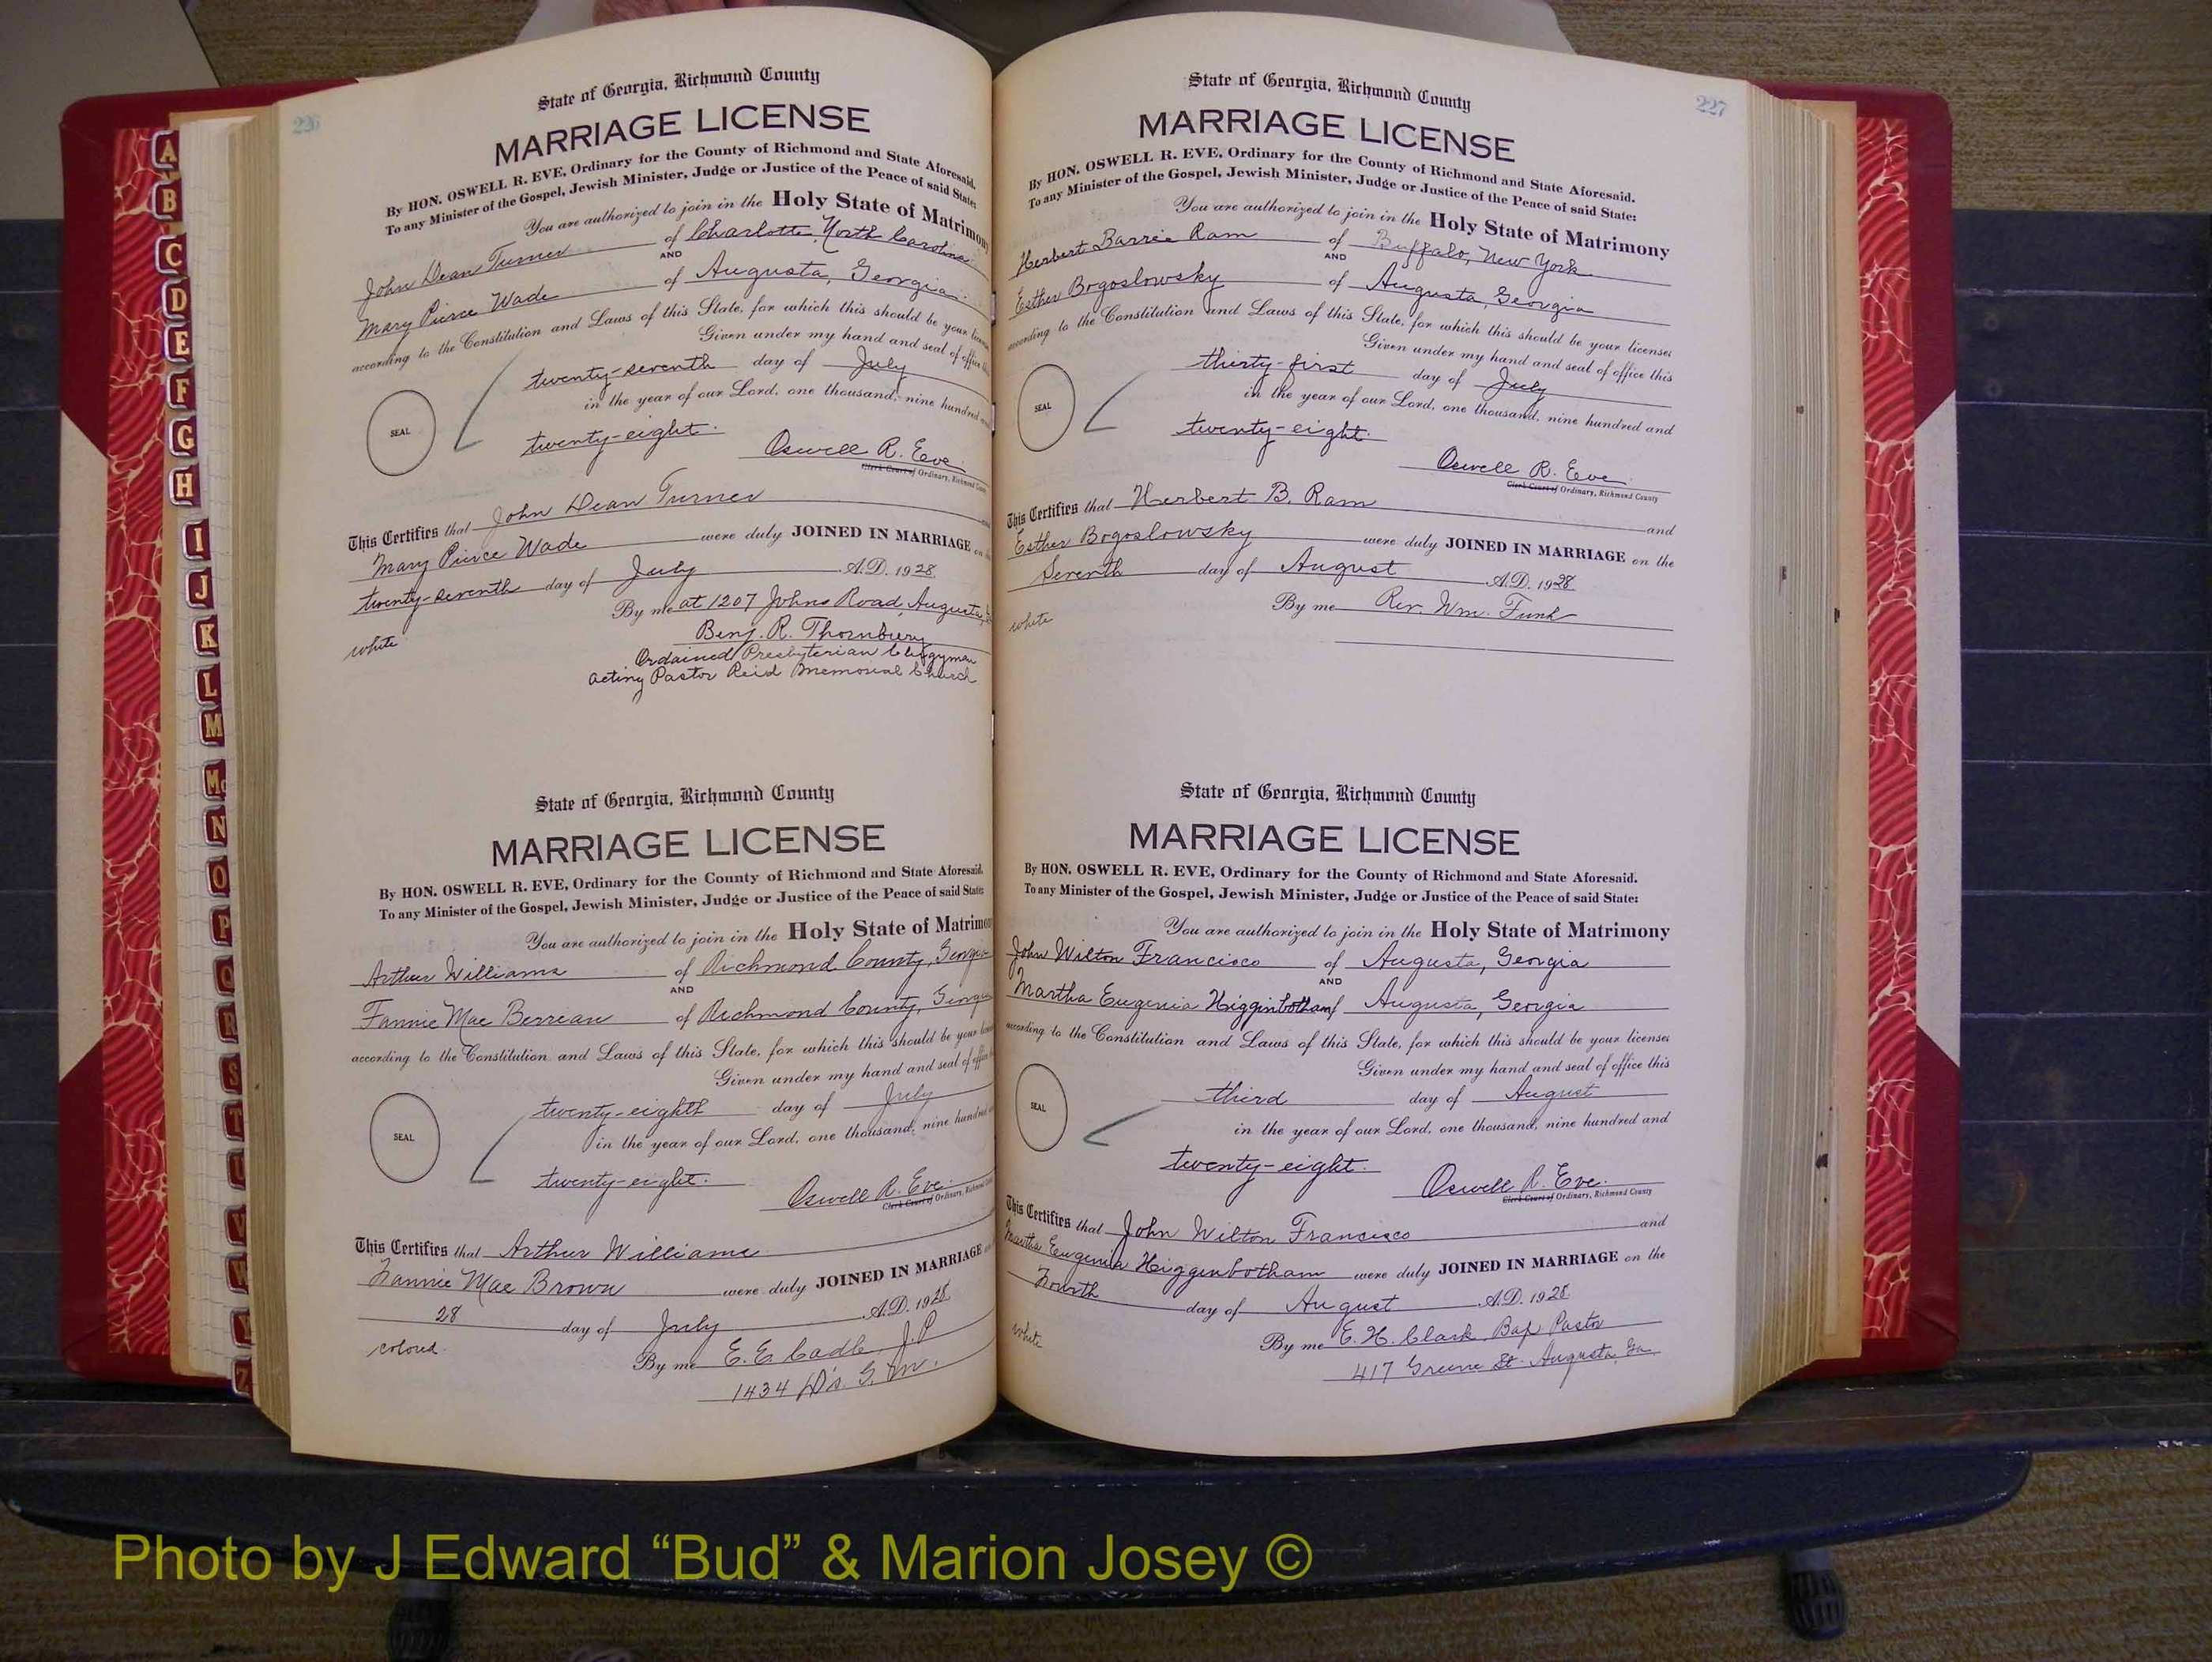 226
State of Georgia, Richmond County
MARRIAGE LICENSE
By HON. OSWELL R. EVE, Ordinary for the County of Richmond and State Aforesaid.
To any Minister of the Gospel, Jewish Minister, Judge or Justice of the Peace of said State:
You are authorized to join in the Holy State of Matrimony
John Dean Turner of Charlotte, North Carolina
AND
Mary Pierce Wade of Augusta, Georgia.
according to the Constitution and Laws of this State, for which this should be your license
Given under my hand and seal of office this
twenty-seventh day of July
in the year of our Lord, one thousand, nine hundred and
SEAL
twenty-eight.
Oswell R. Eve
Clerk Court of Ordinary, Richmond County
This Certifies that John Dean Turner and
Mary Pierce Wade were duly JOINED IN MARRIAGE on the
twenty-seventh day of July A.D. 1928.
By me at 1207 Johns Road, Augusta,
white
Benj. R. Thornbury
Ordained Presbyterian Clergyman
acting Pastor Reid Memorial Church
State of Georgia, Richmond County
MARRIAGE LICENSE
By HON. OSWELL R. EVE, Ordinary for the County of Richmond and State Aforesaid.
To any Minister of the Gospel, Jewish Minister, Judge or Justice of the Peace of said State:
You are authorized to join in the Holy State of Matrimony
Arthur Williams of Richmond County, Georgia
AND
Fannie Mae Berrean of Richmond County, Georgia
according to the Constitution and Laws of this State, for which this should be your license
Given under my hand and seal of office
twenty-eighth day of July
in the year of our Lord, one thousand, nine hundred
SEAL
twenty-eight.
Oswell R. Eve.
Clerk Court of Ordinary, Richmond County
This Certifies that Arthur Williams
Fannie Mae Brown were duly JOINED IN MARRIAGE
28 day of July A.D. 1928.
colored.
By me E. E. Cadle J.P
1434 G. M.
227
State of Georgia, Richmond County
MARRIAGE LICENSE
By HON. OSWELL R. EVE, Ordinary for the County of Richmond and State Aforesaid.
To any Minister of the Gospel, Jewish Minister, Judge or Justice of the Peace of said State:
You are authorized to join in the Holy State of Matrimony
Herbert Barrie Ram of Buffalo, New York
AND
Esther Bogoslowsky of Augusta, Georgia
according to the Constitution and Laws of this State, for which this should be your license
Given under my hand and seal of office this
thirty-first day of July
in the year of our Lord, one thousand, nine hundred and
SEAL
twenty-eight.
Oswell R. Eve.
Clerk Court of Ordinary, Richmond County
This Certifies that Herbert B. Ram and
Esther Bogoslowsky were duly JOINED IN MARRIAGE on the
Seventh day of August A.D. 1928.
By me Rev. Wm. Funk
white
State of Georgia, Richmond County
MARRIAGE LICENSE
By HON. OSWELL R. EVE, Ordinary for the County of Richmond and State Aforesaid.
To any Minister of the Gospel, Jewish Minister, Judge or Justice of the Peace of said State:
You are authorized to join in the Holy State of Matrimony
John Wilton Francisco of Augusta, Georgia
AND
Martha Eugenia Higginbotham of Augusta, Georgia
according to the Constitution and Laws of this State, for which this should be your license
Given under my hand and seal of office this
third day of August
in the year of our Lord, one thousand, nine hundred and
SEAL
twenty-eight.
Oswell R. Eve.
Clerk Court of Ordinary, Richmond County
This Certifies that John Wilton Francisco and
Martha Eugenia Higginbotham were duly JOINED IN MARRIAGE on the
Fourth day of August A.D. 1928.
white
By me E. H. Clark Bap. Pastor
417 Greene St. Augusta, Ga.
A
B
C
D
E
F
G
H
I
J
K
L
M
Mc
N
O
P
Q
R
S
T
U
V
W
Y
Z
Photo by J Edward “Bud” & Marion Josey ©